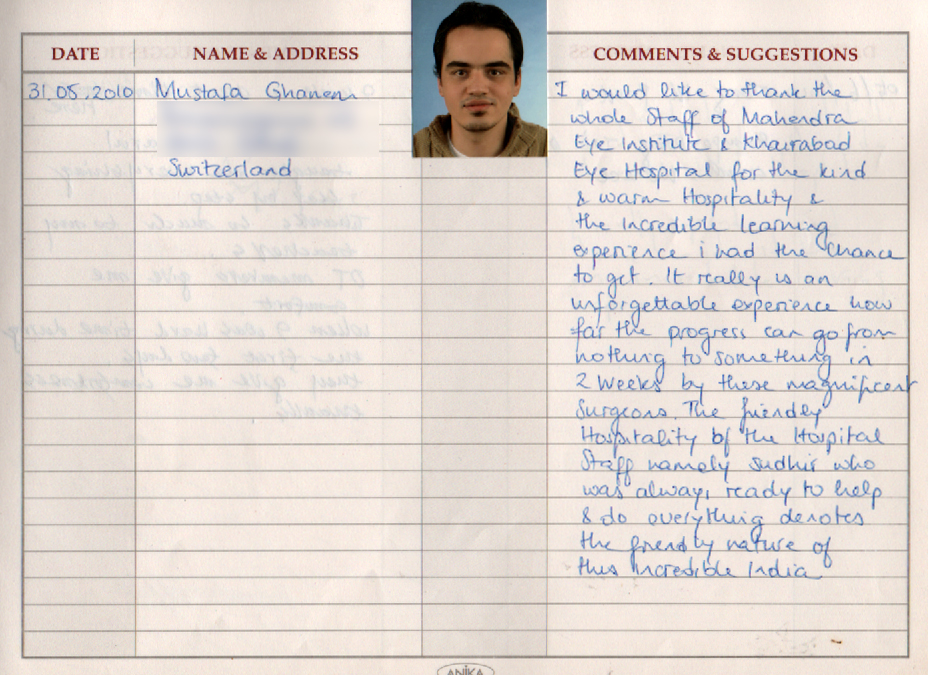 DATE
NAME & ADDRESS
COMMENTS & SUGGESTIONS
31.05.2010
Mustafa Ghanem
Switzerland
I would like to thank the
whole Staff of Mahendra
Eye Institute & Khairabad
Eye Hospital for the kind
& warm Hospitality &
the incredible learning
experience i had the chance
to get. It really is an
unforgettable experience how
far the progress can go from
nothing to something in
2 Weeks by these magnificent
Surgeons. The friendly
Hospitality of the Hospital
Staff namely Sudhir who
was always ready to help
& do everything denotes
the friendly nature of
this Incredible India
ANIKA